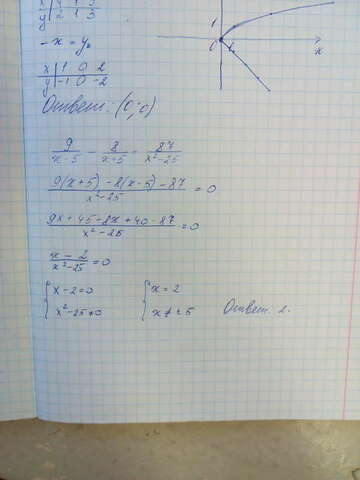 x | 4 1 9
y | 2 1 3
- x = y
x | 1 0 2
y | -1 0 -2
Ответ: (0; 0)
1
0 1 x
9/(x-5) - 8/(x+5) = 87/(x²-25)
(9(x+5) - 8(x-5) - 87)/(x²-25) = 0
(9x+45-8x+40-87)/(x²-25) = 0
(x-2)/(x²-25) = 0
{ x-2=0 { x = 2
{ x²-25≠0 { x ≠ ±5 Ответ: 2.